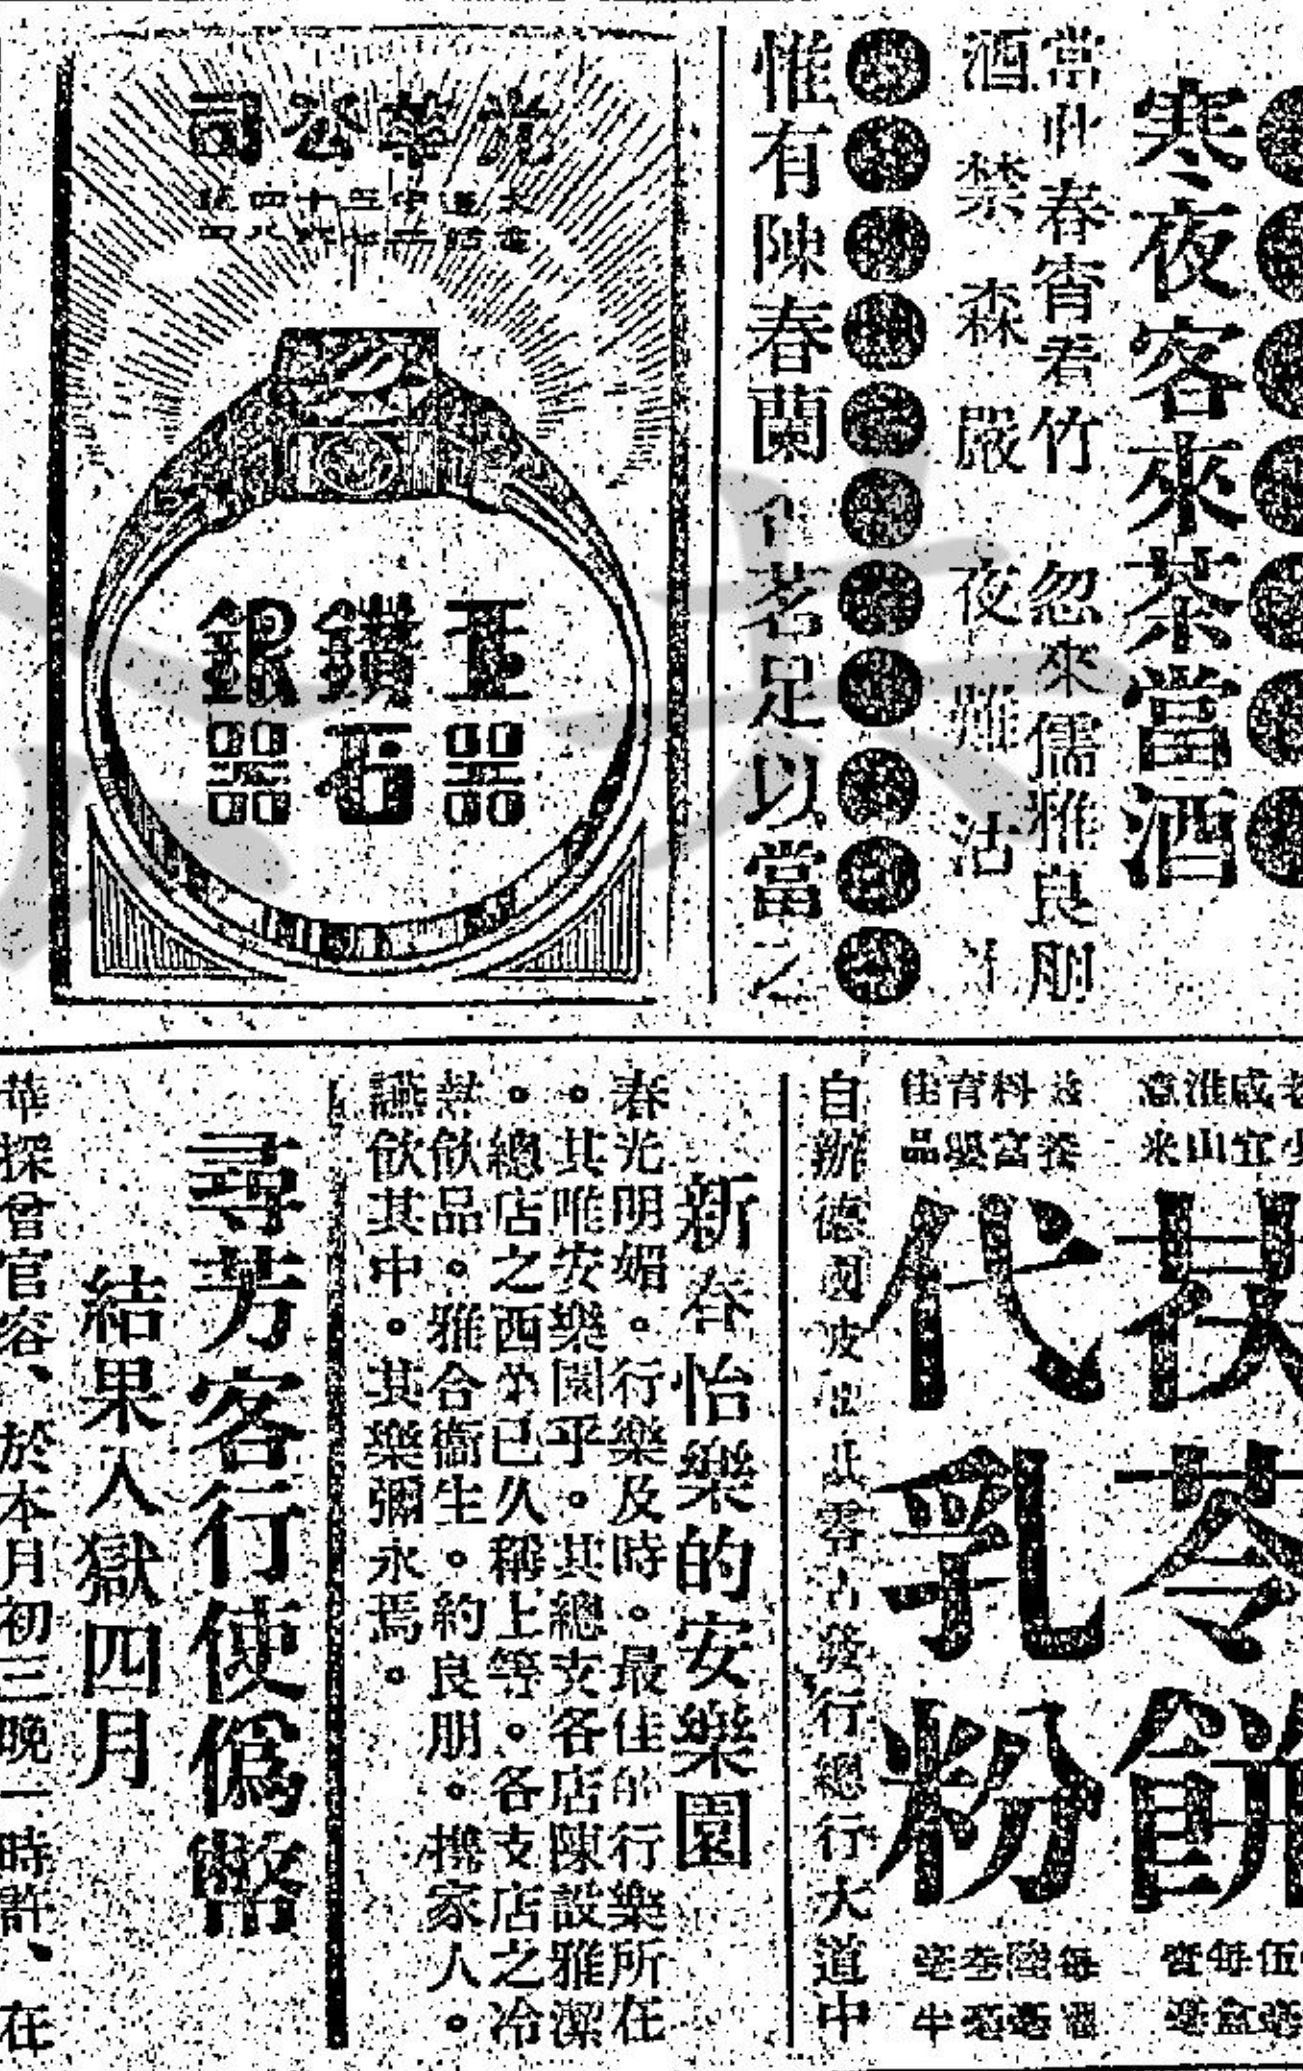 寒夜客來茶當酒
當此春宵看竹 忽來儒雅良朋
酒禁森嚴 夜難沽斗
惟有陳春蘭 茗足以當之
光華公司
玉器
鑽石
銀器
茯苓餅
代乳粉
自辦德國 發行總行大道中
新春怡樂的安樂園
春光明媚。行樂及時。最佳的行樂所在
。其唯安樂園乎。其總支各店陳設雅潔
。總店之西弟已久稱上等。各支店之冷
熱飲品。雅合衞生。約良朋。携家人。
讌飲其中。其樂彌永焉。
尋芳客行使僞幣
結果入獄四月
華探曾官容、於本月初三晚一時許、在